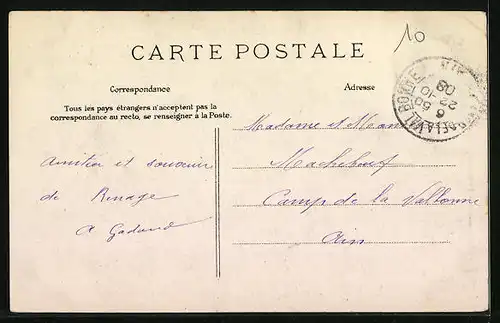 10
CARTE POSTALE
Correspondance
Adresse
Tous les pays étrangers n'acceptent pas la
correspondance au recto, se renseigner à la Poste.
Madame et
Amitiés et souvenir
de Renage
A
Camp de la Valbonne
Ain
6
22 50
08